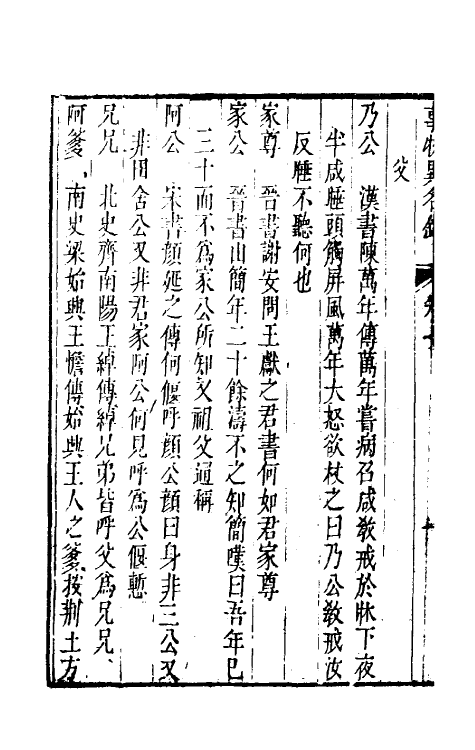 事物異名錄 卷
父
乃公　漢書陳萬年傳萬年嘗病召咸敎戒於牀下夜
半咸睡頭觸屏風萬年大怒欲杖之曰乃公敎戒汝
反睡不聽何也
家尊　晉書謝安問王獻之君書何如君家尊
家公　晉書山簡年二十餘濤不之知簡嘆曰吾年巳
三十而不爲家公所知又祖父通稱
阿公　宋書顏延之傳何偃呼顏公顏曰身非三公又
非田舍公又非君家阿公何見呼爲公偃慙
兄兄　北史齊南陽王綽傳綽兄弟皆呼父爲兄兄
阿爹　南史梁始興王憺傳始興王人之爹按荆土方